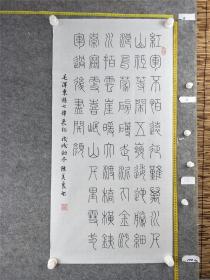 紅軍不怕遠征難萬水千
山只等閒五嶺逶迤騰細
浪烏蒙磅礴走泥丸金沙
水拍雲崖暖大渡橋橫鐵
索寒更喜岷山千里雪三
軍過後盡開顏
毛澤東詩七律長征 戊戌初冬 陳